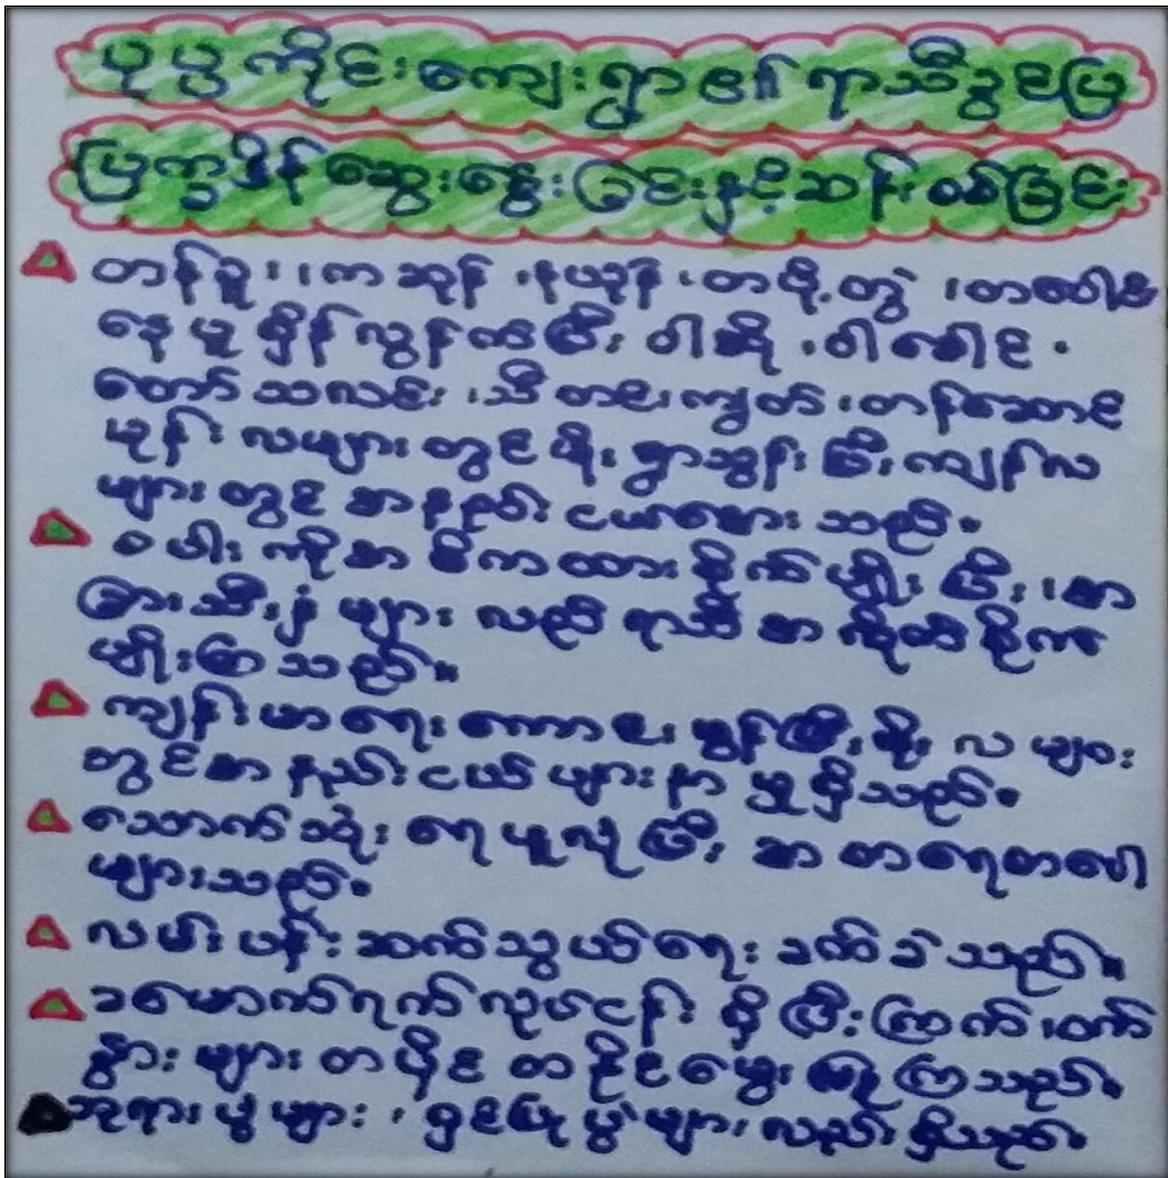 ပုပ္ပကိုင်းကျေးရွာ၏ ရာသီခွင်ပြ
ပြက္ခဒိန်ဆွေးနွေးခြင်းနှင့်ဆန်းစစ်ခြင်း
တန်ခူး၊ ကဆုန်၊ နယုန်၊ တပို့တွဲ၊ တပေါင်း
နေပူရှိန်လွန်ကဲပြီး ဝါဆို၊ ဝါခေါင်၊
တော်သလင်း၊ သီတင်းကျွတ်၊ တန်ဆောင်
မုန်းလများတွင် မိုးရွာသွန်းပြီး ကျန်လ
များတွင် အနည်းငယ်အေးသည်။
စပါးကိုအဓိကထားစိုက်မျိုးပြီး၊ အ
ခြားသီးနှံများလည်း ရာသီအလိုက်စိုက်
မျိုးကြသည်။
ကျန်းမာရေးကောင်းမွန်ပြီး မိုးလများ
တွင်အနည်းငယ်များနာမှုရှိသည်။
သောက်သုံးရေမူလုံပြီး အတရေတပေါ
များသည်။
လမ်းပန်းဆက်သွယ်ရေးခက်ခဲသည်။
ခမောက်ရက်လုပ်ငန်းရှိပြီး ကြက်၊ ဝက်
နွားများ တပိုင်တနိုင်မွေးမြူကြသည်။
ဘုရားပွဲများ၊ ရှင်ပြုပွဲများလည်းရှိသည်။